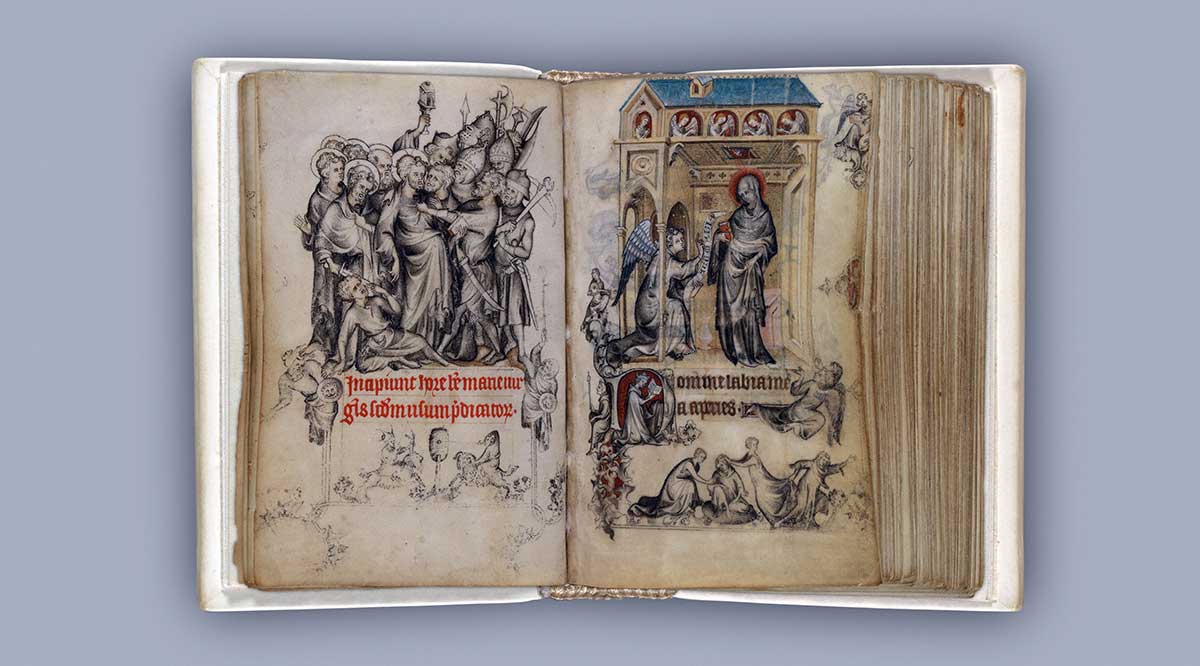 Incipiunt hore bte marie uir
ginis scdm usum pdicator.
Domine labia me
a apries.